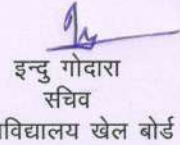 इन्दु गोदारा
सचिव
विद्यालय खेल बोर्ड